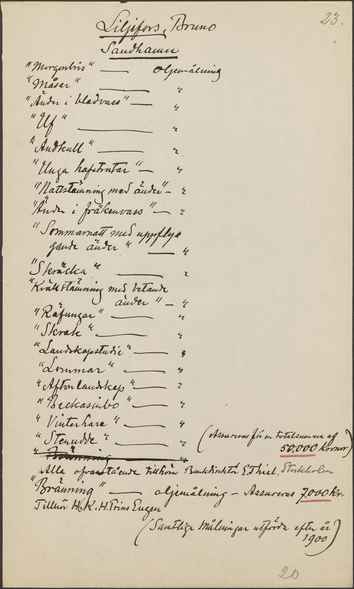 23.
Liljefors, Bruno
Sandhamn
"Morgonbris" — oljemålning
"Måsar" — "
"Änder i bladvass" — "
"Uf" — "
"Andkull" — "
"Unga hafstrutar" — "
"Nattstämning med änder" — "
"Änder i fräkenvass" — "
"Sommarnatt med uppfly-
gande änder" — "
"Skräcka" — "
"Kvällsstämning med betande
änder" — "
"Räfungar" — "
"Skrak" — "
"Landskapsstudie" — "
"Lommar" — "
"Aftonlandskap" — "
"Beckasinbo" — "
"Vinterhare" — "
"Stenudde" — "
(Assureras för en totalsumma af
50.000 kronor)
"Bränning"
Alla ofvanstående tillhöra Bankdirektör E. Thiel, Stockholm
"Bränning" — oljemålning – Assureras 7000 kr.
Tillhör H. K. H. Prins Eugen
(Samtliga målningar utförda efter år
1900)
20